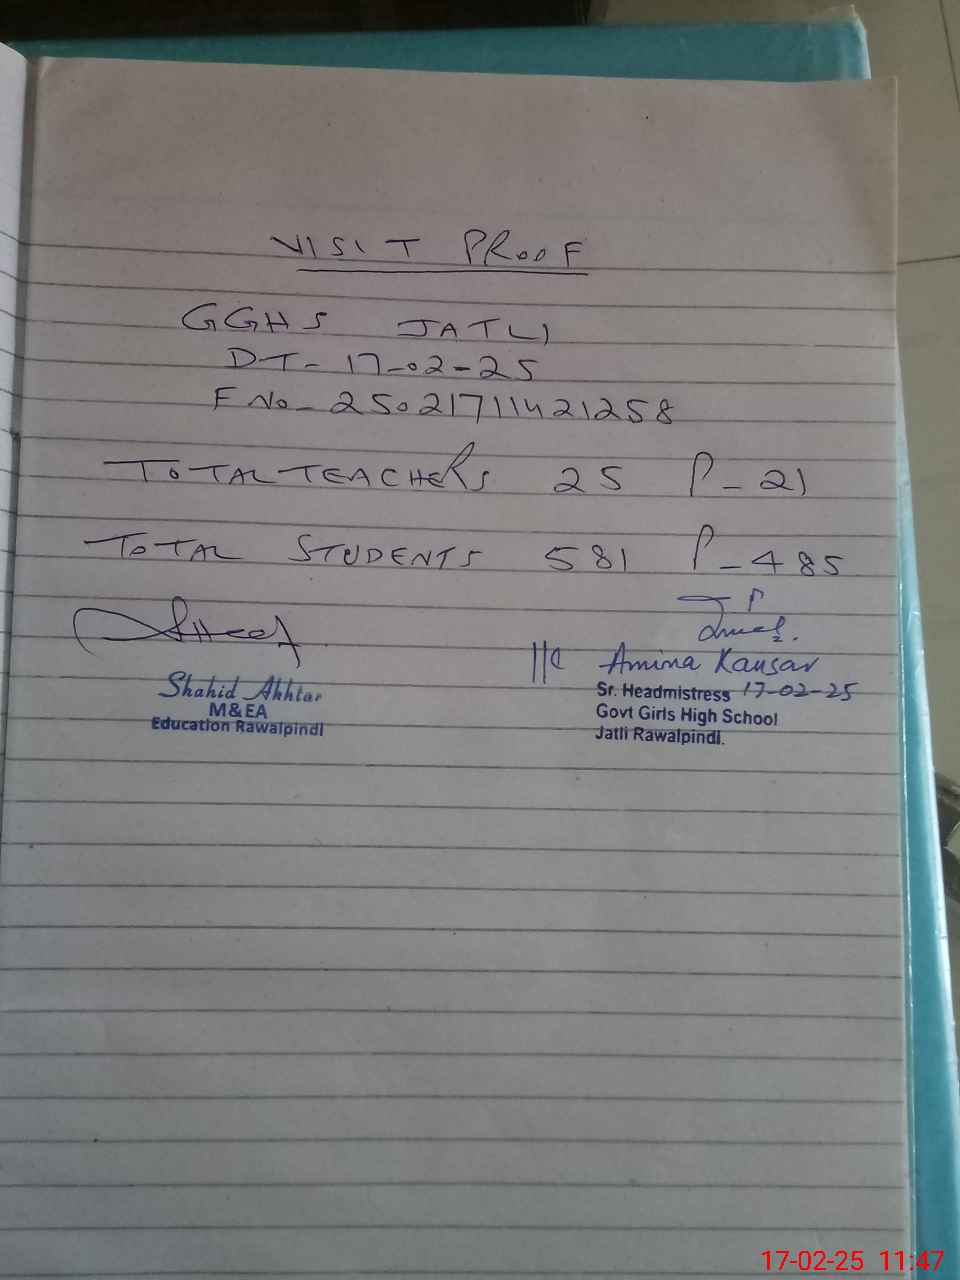 VISIT PROOF
GGHS JATLI
DT- 17-02-25
F No- 25021711421258
TOTAL TEACHERS 25 P-21
TOTAL STUDENTS 581 P-485
Shahid Akhtar
M&EA
Education Rawalpindi
Amina Kausar
Sr. Headmistress 17-02-25
Govt Girls High School
Jatli Rawalpindi.
17-02-25 11:47